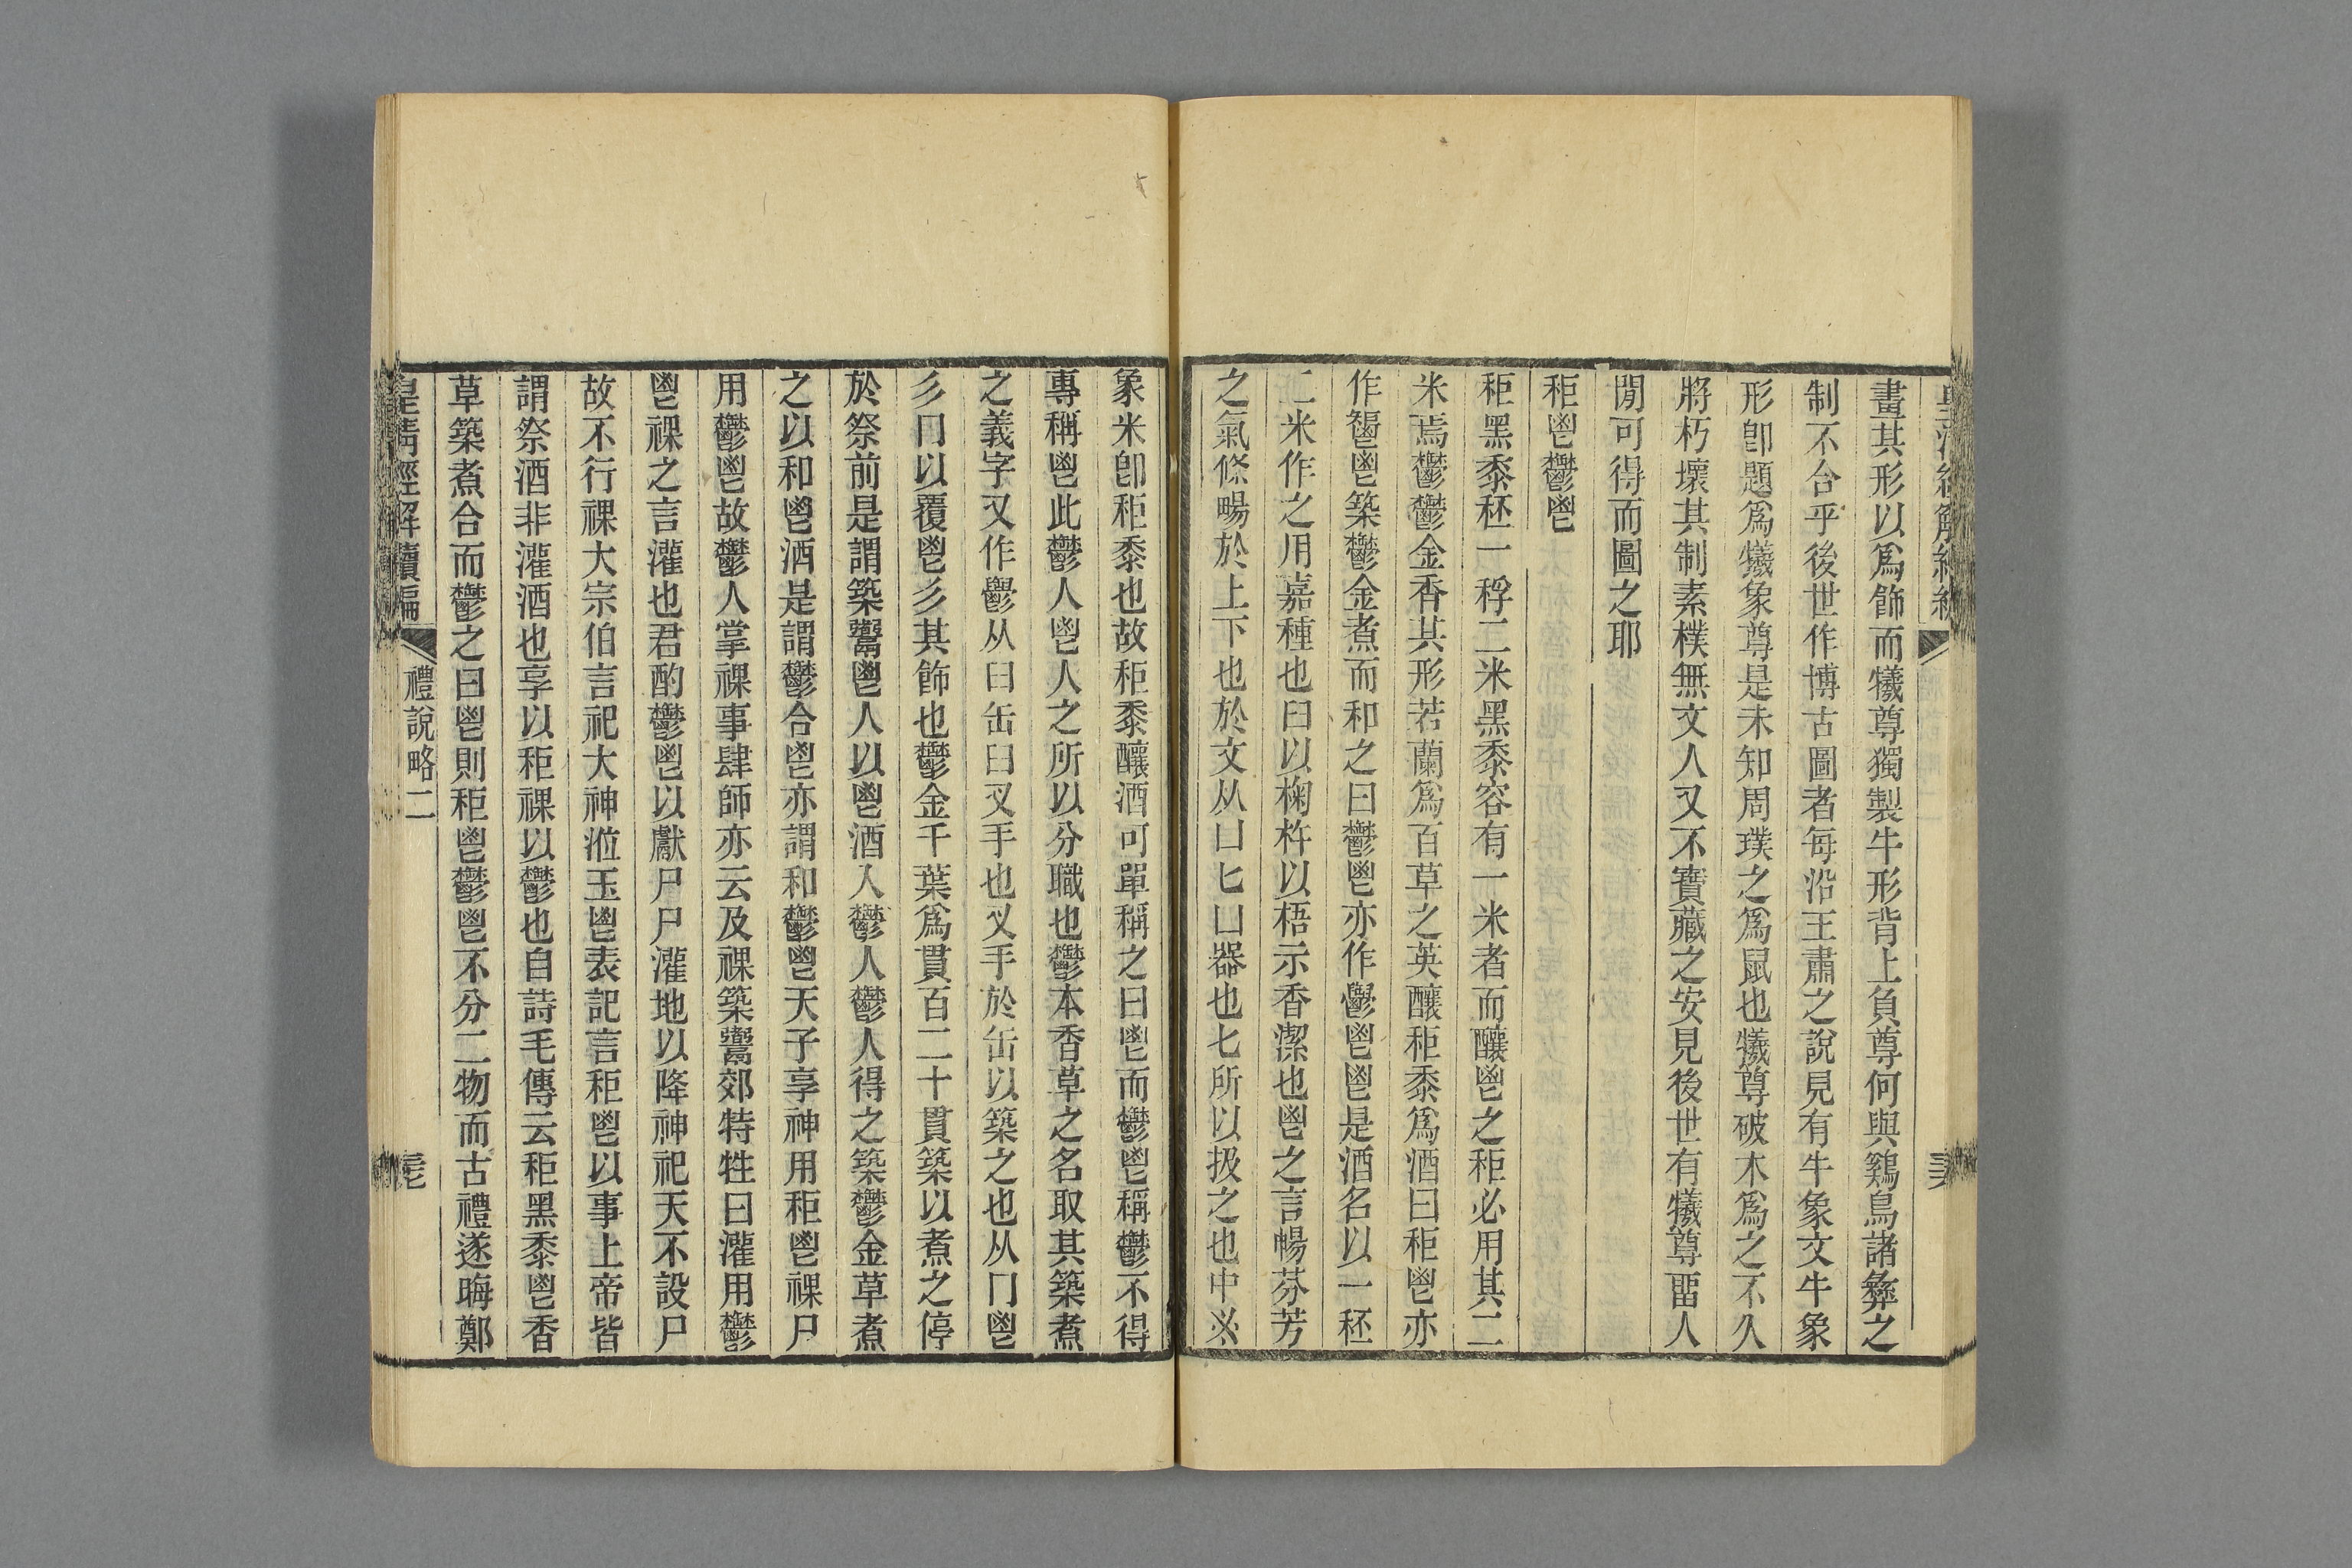 畫其形以爲飾而犧尊獨製牛形背上負尊何與鷄鳥諸彝之
制不合乎後世作博古圖者每沿王肅之說見有牛象文牛象
形卽題爲犧象尊是未知周璞之爲鼠也犧尊破木爲之不久
將朽壞其制素樸無文人又不寶藏之安見後世有犧尊畱人
閒可得而圖之耶
秬鬯鬱鬯
秬黑黍秠一稃二米黑黍容有一米者而釀鬯之秬必用其二
米焉鬱鬱金香其形若蘭爲百草之英釀秬黍爲酒曰秬鬯亦
鬯築鬱金煮而和之曰鬱鬯亦作鬯鬯是酒名以一秠
二米作之用嘉種也臼以椈杵以梧示香潔也鬯之言暢芬芳
之氣條暢於上下也於文从凵匕凵器也匕所以扱之也中※
象米卽秬黍也故秬黍釀酒可單稱之曰鬯而鬱鬯稱鬱不得
專稱鬯此鬱人鬯人之所以分職也鬱本香草之名取其築煮
之義字又作鬱从臼缶臼叉手也叉手於缶以築之也从冂鬯
彡冂以覆鬯彡其飾也鬱金千葉爲貫百二十貫築以煮之停
於祭前是謂築鬻鬯人以鬯酒入鬱人鬱人得之築鬱金草煮
之以和鬯酒是謂鬱合鬯亦謂和鬱鬯天子享神用秬鬯祼尸
用鬱鬯故鬱人掌祼事肆師亦云及祼築鬻郊特牲曰灌用鬱
鬯祼之言灌也君酌鬱鬯以獻尸尸灌地以降神祀天不設尸
故不行祼大宗伯言祀大神涖玉鬯表記言秬鬯以事上帝皆
謂祭酒非灌酒也享以秬祼以鬱也自詩毛傳云秬黑黍鬯香
草築煮合而鬱之曰鬯則秬鬯鬱鬯不分二物而古禮遂晦鄭
皇清經解續編 禮說略二